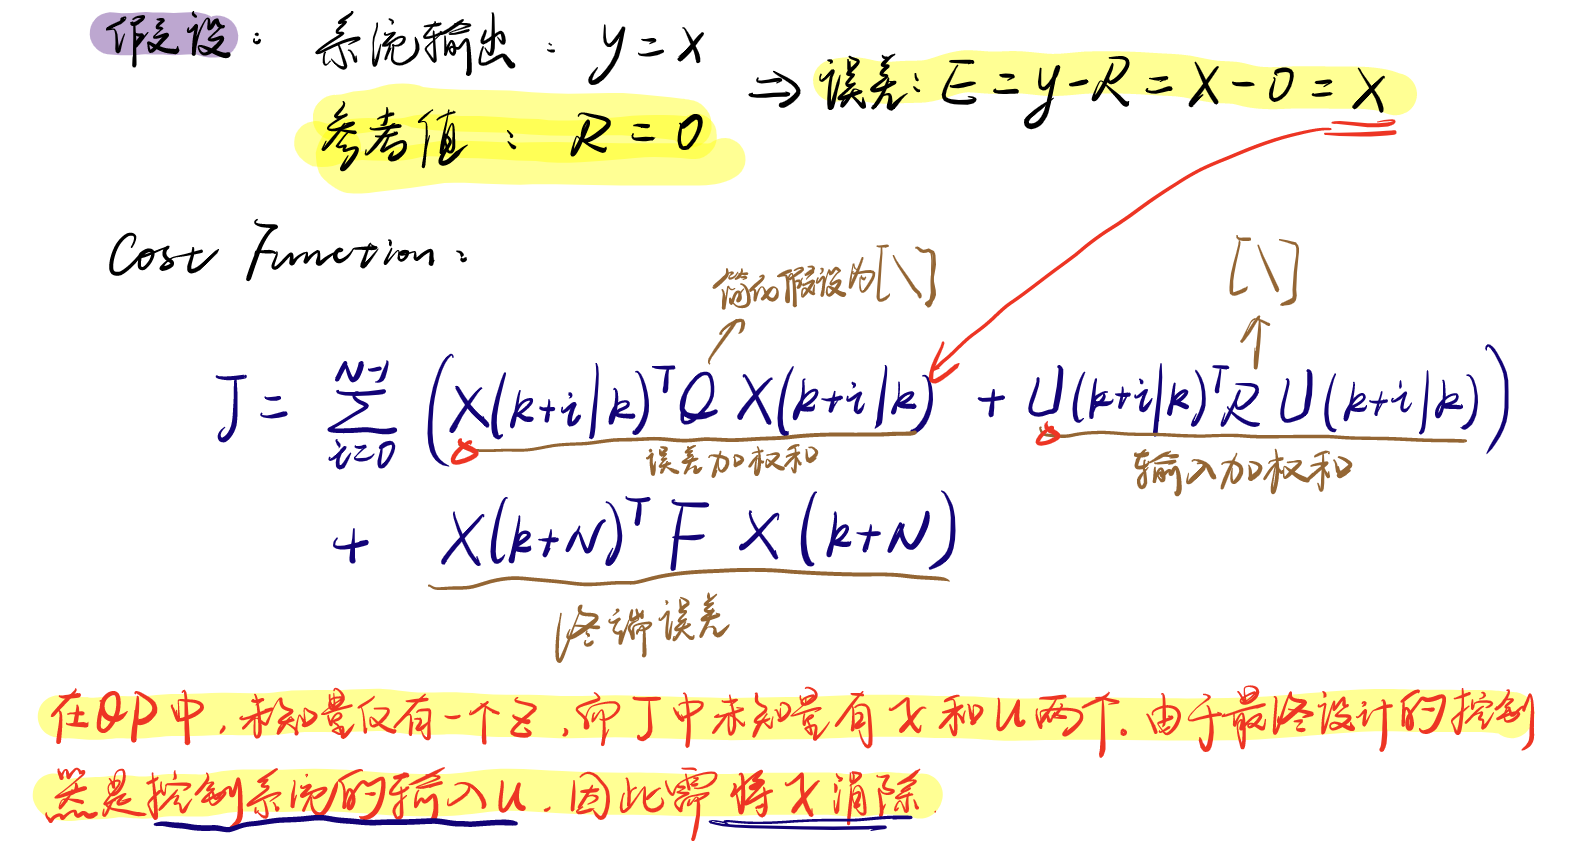 假设: 系统输出: y=x
参考值: R=0
⇒ 误差: E=y-R=X-0=X
Cost Function:
简的假设为[\]
[\]
J= \sum_{i=0}^{N-1} (X(k+i|k)^T Q X(k+i|k) + U(k+i|k)^T R U(k+i|k))
误差加权和
输入加权和
+ X(k+N)^T F X(k+N)
终端误差
在QP中,未知量仅有一个Z,而J中未知量有X和U两个.由于最终设计的控制
器是控制系统的输入u.因此需将X消除